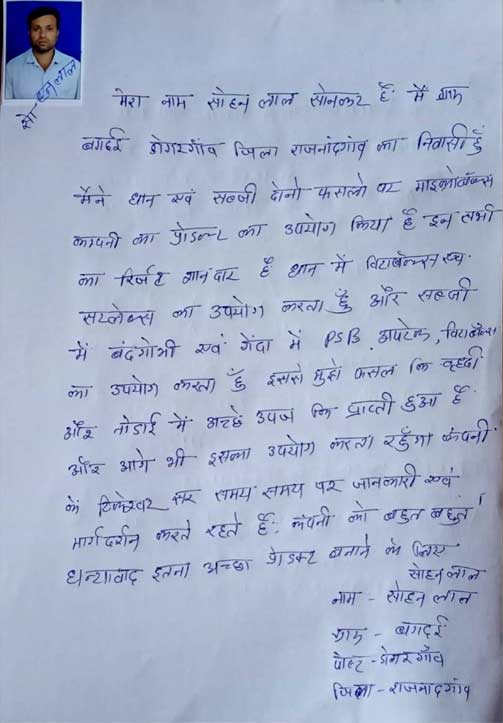 सोहन लाल
मेरा नाम सोहन लाल सोनकर है मैं ग्राम
बगदई डोगरगाँव जिला राजनांदगांव का निवासी हुँ
मैंने धान एवं सब्जी दोनो फसलो पर
कम्पनी का प्रोडक्ट का उपयोग किया है इन सभी
का रिजल्ट शानदार है धान में
का उपयोग करता हुँ और सब्जी
में बंदगोभी एवं गेंदा में PSB
का उपयोग करता हुँ इससे मुझे फसल कि वृध्दी
और तोडाई में अच्छे उपज कि प्राप्ती हुआ है
और आगे भी इसका उपयोग करता रहुँगा कंपनी
के सर समय समय पर जानकारी एवं
मार्गदर्शन करते रहते है: कंपनी को बहुत बहुत।
धन्यावाद इतना अच्छा प्रोडक्ट बनाने के लिए
सोहन लाल
नाम - सोहन लाल
ग्राम - बगदई
पोस्ट - डोगरगाँव
जिला - राजनादगांव